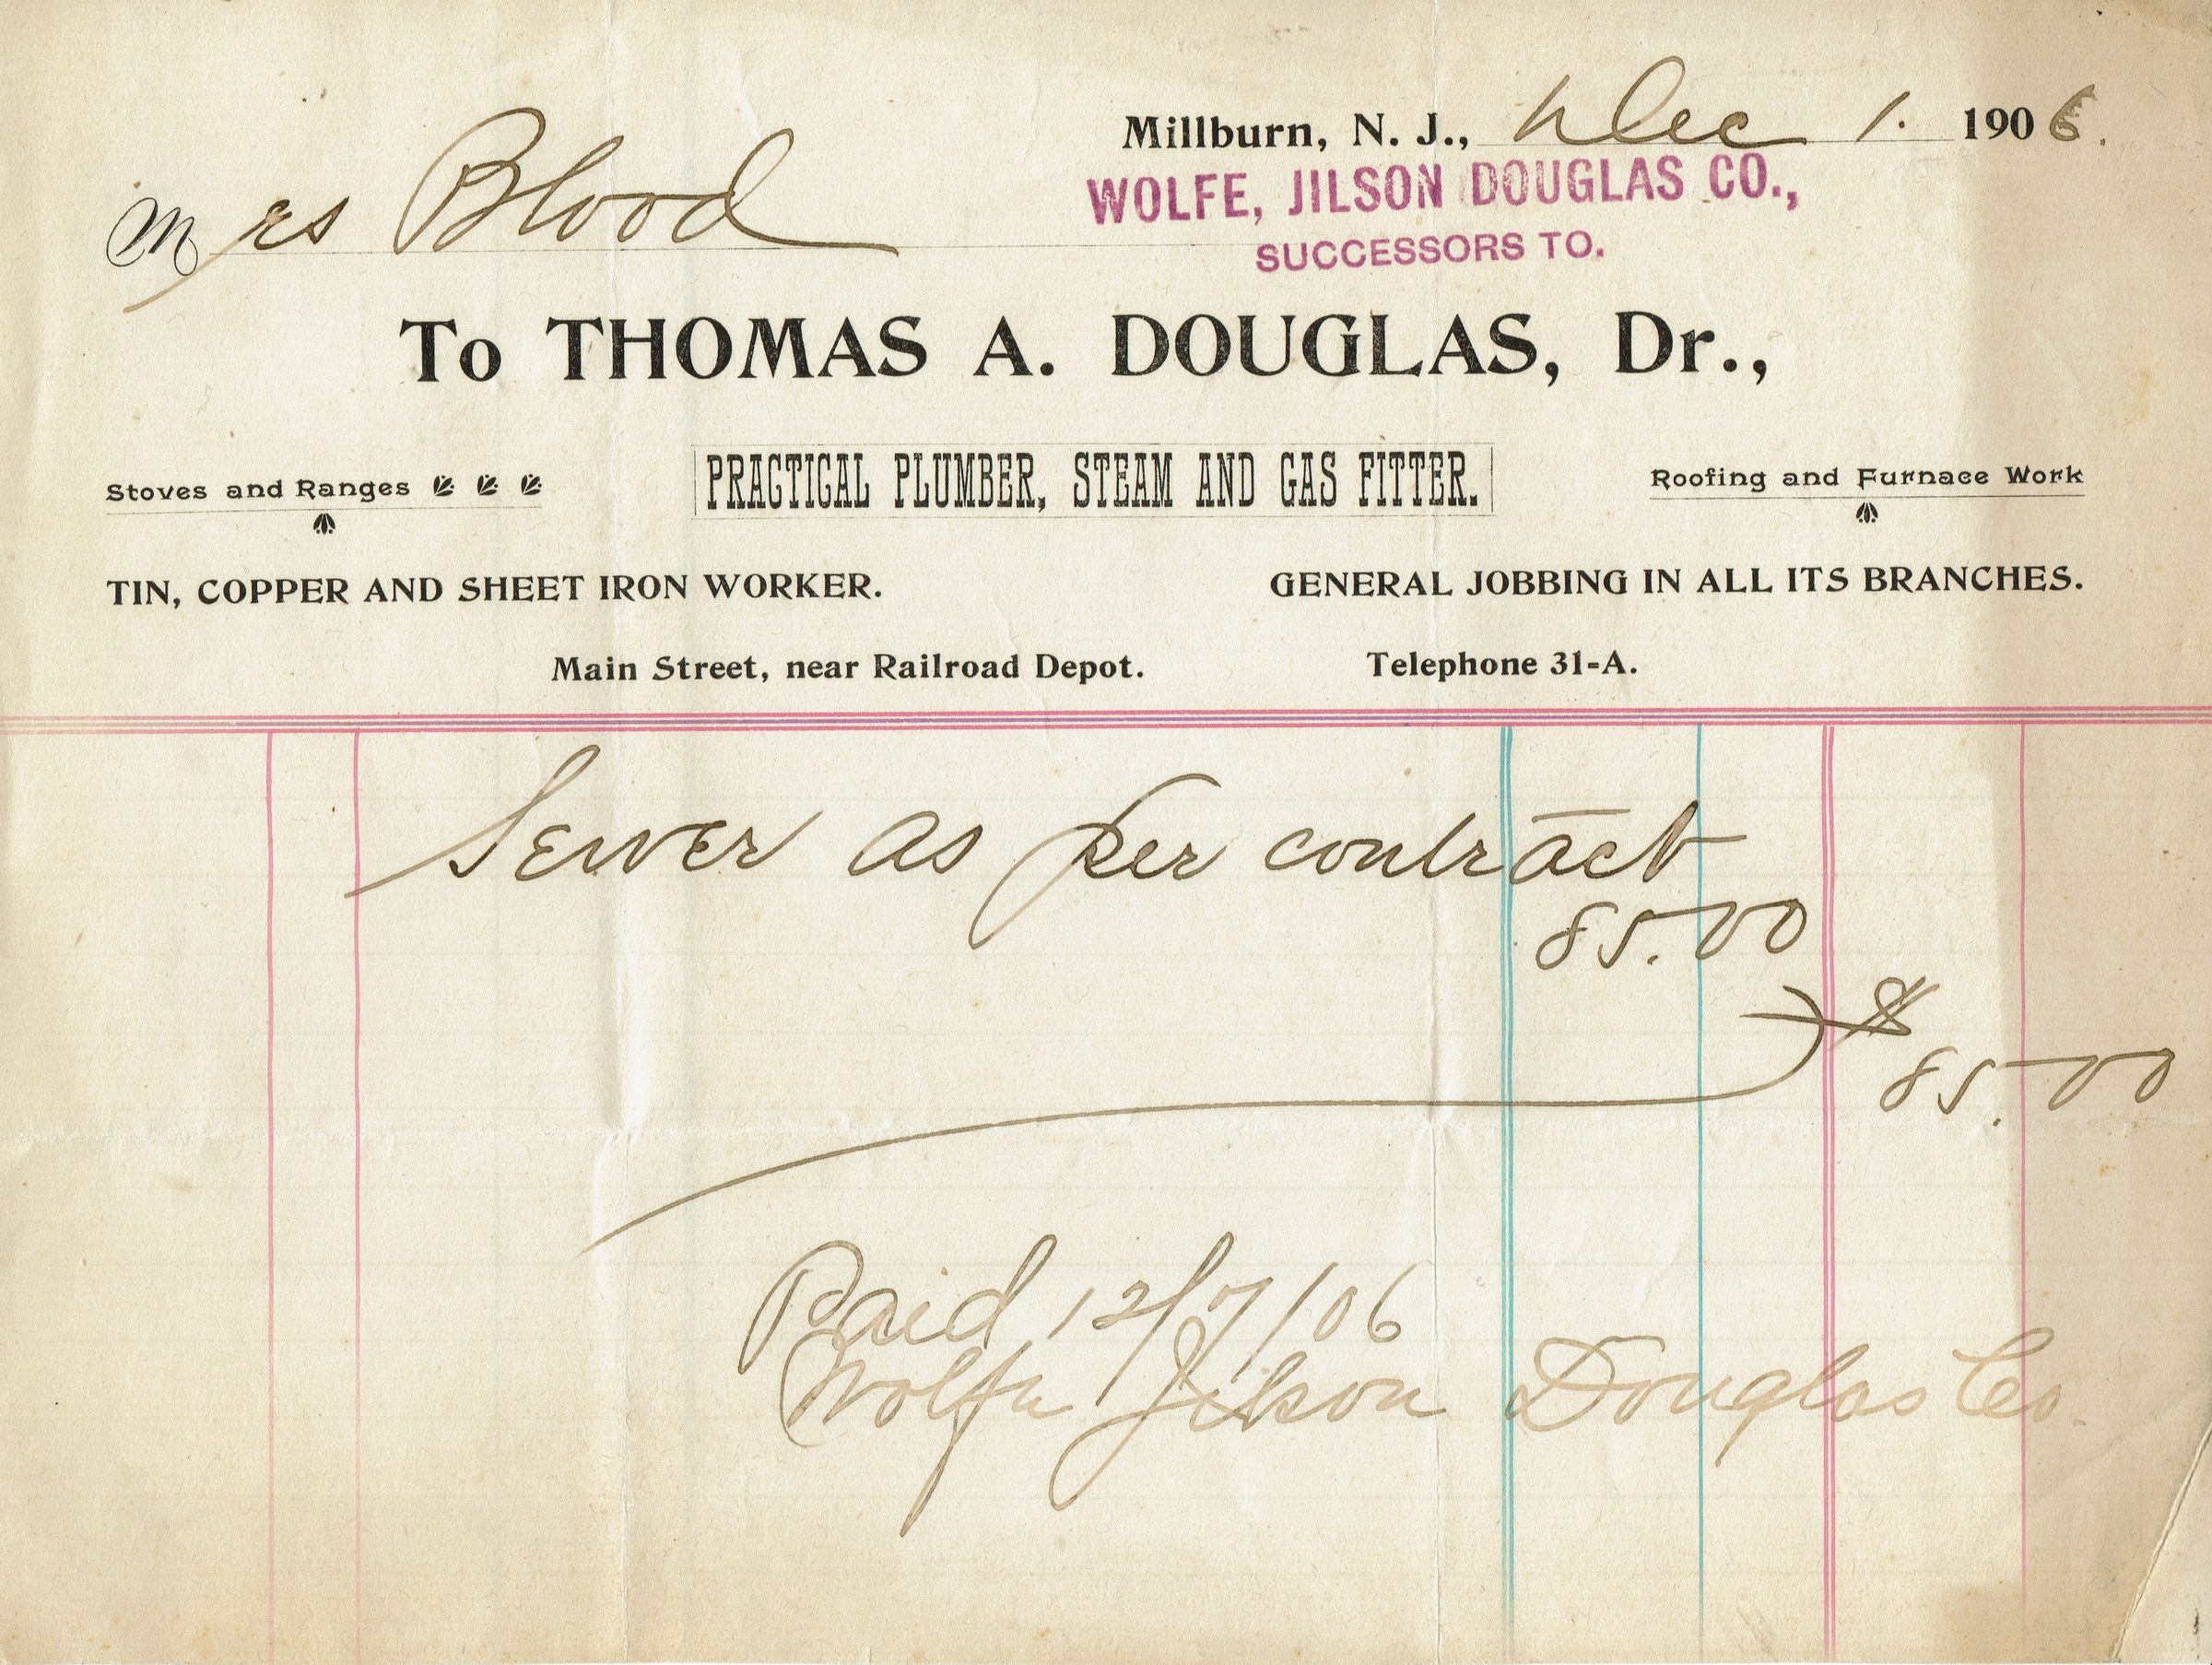 Millburn, N. J., Dec 1. 1906.
Mrs Blood
WOLFE, JILSON DOUGLAS CO.,
SUCCESSORS TO.
To THOMAS A. DOUGLAS, Dr.,
Stoves and Ranges
PRACTICAL PLUMBER, STEAM AND GAS FITTER.
Roofing and Furnace Work
TIN, COPPER AND SHEET IRON WORKER.
GENERAL JOBBING IN ALL ITS BRANCHES.
Main Street, near Railroad Depot.
Telephone 31-A.
Sewer as per contract
85.00
$
85.00
Paid 12/7/06
Wolfe Jilson Douglas Co.